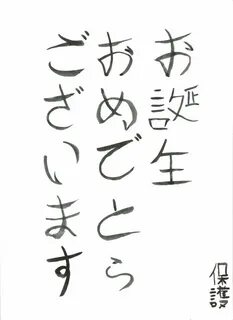 お誕生
おめでとう
ございます
保護